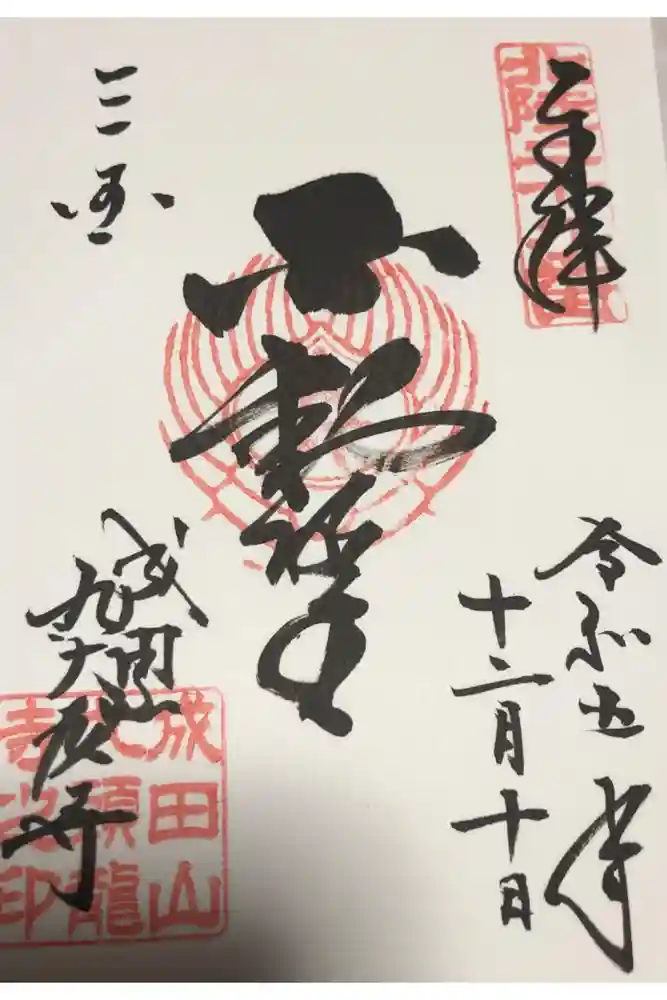 奉拝
北陸三十
令和五年
十二月十日
不動明王
三国
成田山
九頭龍寺
成田山
九頭龍
寺之印